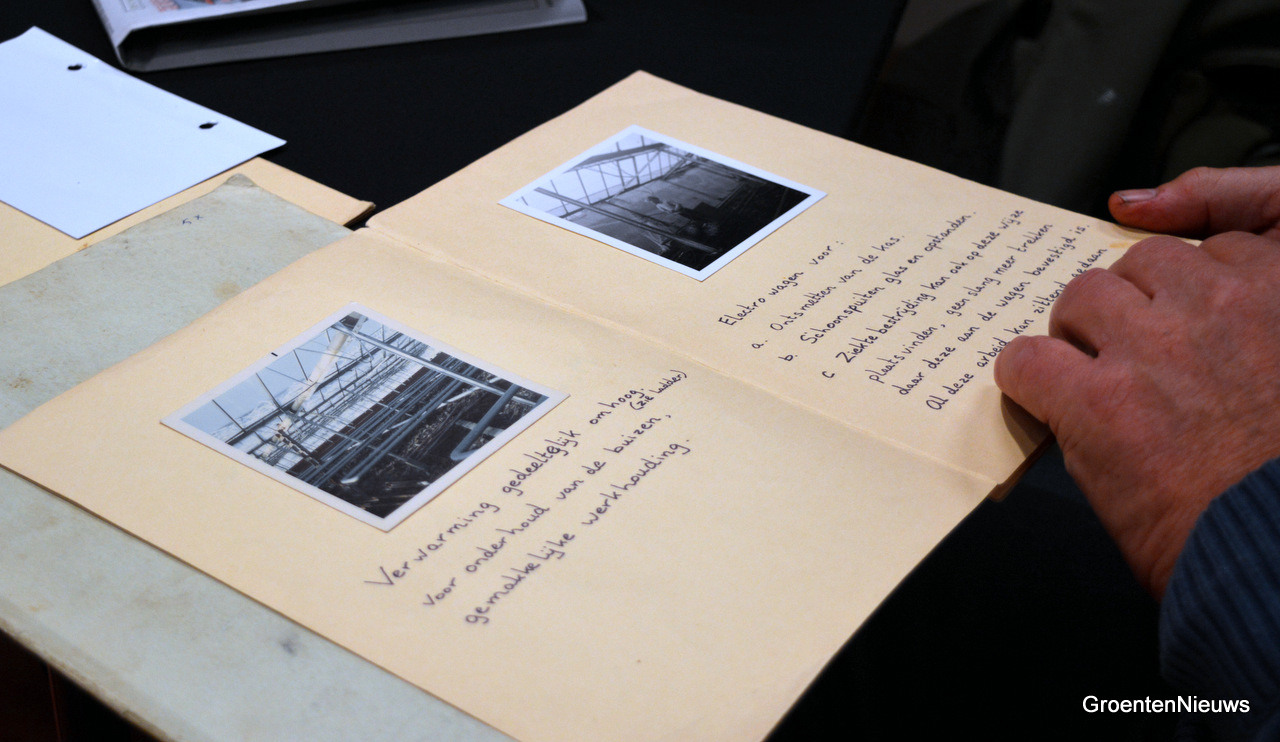 Verwarming gedeeltelijk omhoog.
(zie ladder)
voor onderhoud van de buizen,
gemakkelijke werkhouding.
Electro wagen voor:
a. Ontsmetten van de kas.
b. Schoonspuiten glas en opstanden.
c Ziekte bestrijding kan ook op deze wijze
plaats vinden, geen slang meer trekken
daar deze aan de wagen bevestigd is.
Al deze arbeid kan zittend gedaan
5x
GroentenNieuws